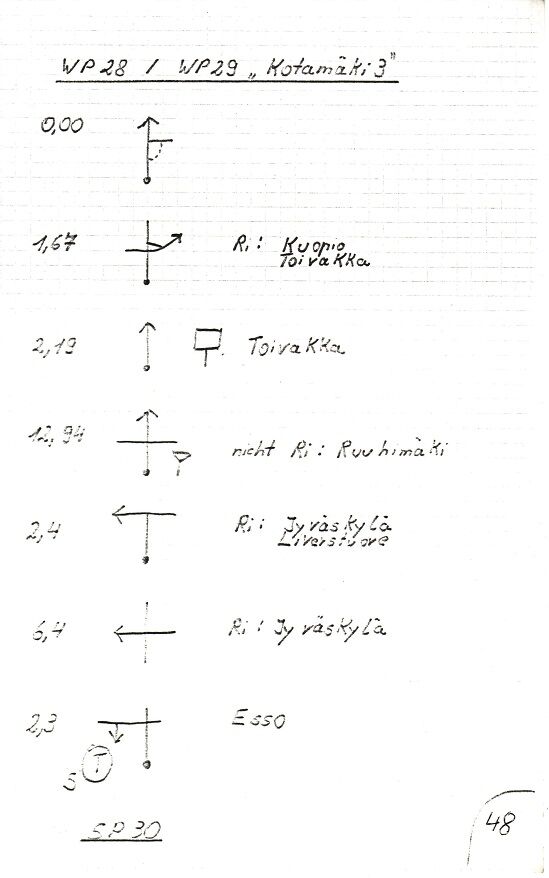 WP28 / WP29 „Kotamäki 3"
0,00
1,67 Ri: Kuopio
Toivakka
2,19 Toivakka
12,94 nicht Ri: Ruuhimäki
2,4 Ri: Jyväskylä
Liverstuore
6,4 Ri: Jyväskylä
2,3 Esso
S T
SP30
48